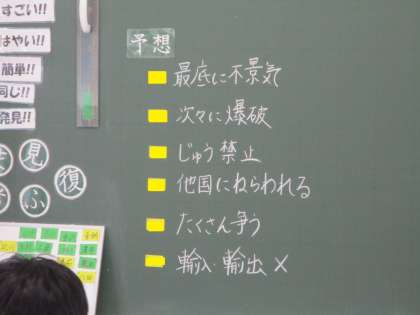 すごい!!
はやい!!
簡単!!
同じ!!
発見!!
見
復
ふ
予想
最底に不景気
次々に爆破
じゅう禁止
他国にねらわれる
たくさん争う
輸入・輸出 ×